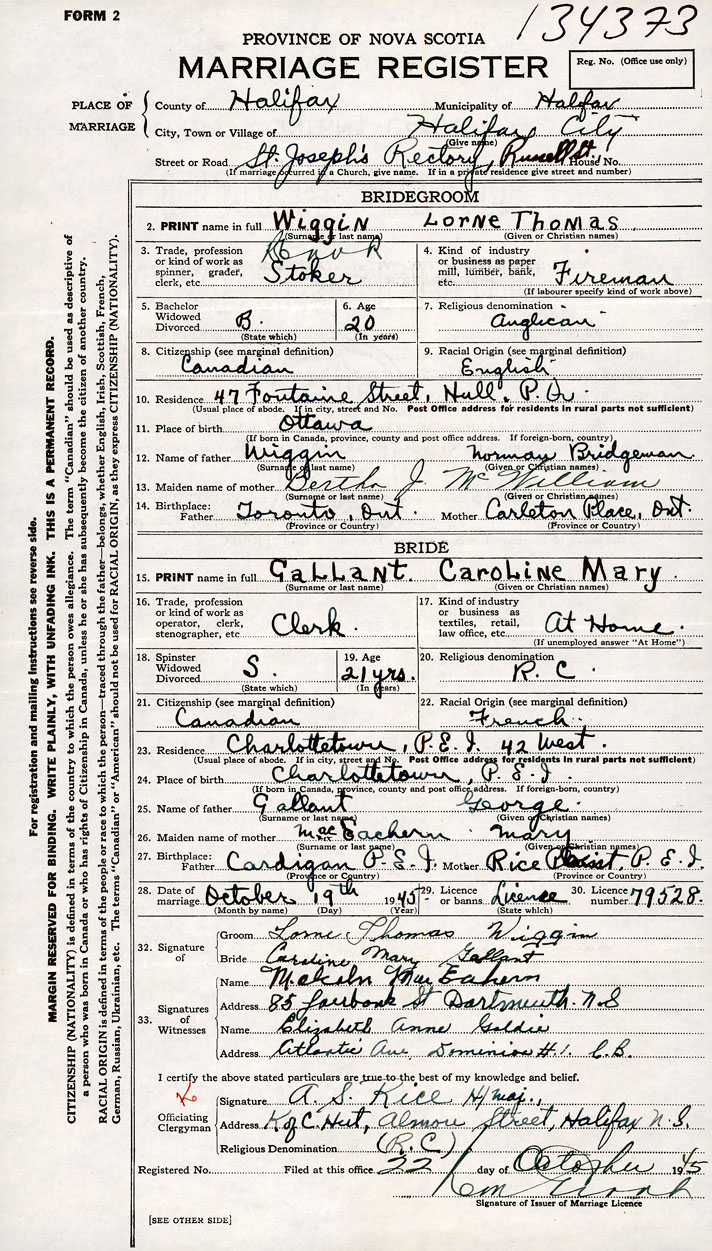 FORM 2
134373
PROVINCE OF NOVA SCOTIA
MARRIAGE REGISTER
Reg. No. (Office use only)
PLACE OF MARRIAGE
County of Halifax Municipality of Halfax
City, Town or Village of Halifax City
(Give name)
Street or Road St. Joseph's Rectory, Russell St., House No.
(If marriage occurred in a Church, give name. If in a private residence give street and number)
BRIDEGROOM
2. PRINT name in full Wiggin Lorne Thomas
(Surname or last name) (Given or Christian names)
3. Trade, profession or kind of work as spinner, grader, clerk, etc. Stoker
4. Kind of industry or business as paper mill, lumber, bank, etc. Fireman
(If labourer specify kind of work above)
5. Bachelor Widowed Divorced B. (State which)
6. Age 20 (In years)
7. Religious denomination Anglican
8. Citizenship (see marginal definition) Canadian
9. Racial Origin (see marginal definition) English
10. Residence 47 Fontaine Street, Hull, P.Q.
(Usual place of abode. If in city, street and No. Post Office address for residents in rural parts not sufficient)
11. Place of birth Ottawa
(If born in Canada, province, county and post office address. If foreign-born, country)
12. Name of father Wiggin Norman Bridgeman
(Surname or last name) (Given or Christian names)
13. Maiden name of mother Bertha J McWilliam
(Surname or last name) (Given or Christian names)
14. Birthplace: Father Toronto, Ont. Mother Carleton Place, Ont.
(Province or Country) (Province or Country)
BRIDE
15. PRINT name in full Gallant. Caroline Mary.
(Surname or last name) (Given or Christian names)
16. Trade, profession or kind of work as operator, clerk, stenographer, etc Clerk.
17. Kind of industry or business as textiles, retail, law office, etc. At Home.
(If unemployed answer "At Home")
18. Spinster Widowed Divorced S. (State which)
19. Age 21 yrs. (In years)
20. Religious denomination R. C.
21. Citizenship (see marginal definition) Canadian
22. Racial Origin (see marginal definition) French.
23. Residence Charlottetown, P.E.I. 42 West.
(Usual place of abode. If in city, street and No. Post Office address for residents in rural parts not sufficient)
24. Place of birth Charlottetown, P.E.I.
(If born in Canada, province, county and post office address. If foreign-born, country)
25. Name of father Gallant George.
(Surname or last name) (Given or Christian names)
26. Maiden name of mother MacEachern Mary
(Surname or last name) (Given or Christian names)
27. Birthplace: Father Cardigan P.E.I. Mother Rice Point, P.E.I.
(Province or Country) (Province or Country)
28. Date of marriage October 19th 1945
(Month by name) (Day) (Year)
29. Licence or banns. License (State which)
30. Licence number 79528.
32. Signature of
Groom Lorne Thomas Wiggin
Bride Caroline Mary Gallant
33. Signatures of Witnesses
Name Malcolm MacEachern
Address 85 Fairbank St Dartmouth. N.S
Name Elizabeth Anne Goldie
Address Atlantic Ave, Dominion #1. C.B.
I certify the above stated particulars are true to the best of my knowledge and belief.
Officiating Clergyman
Signature A. S. Rice H/maj.,
Address K of C. Hut, Almon Street, Halifax N.S.
Religious Denomination (R.C.)
Registered No. Filed at this office 22 day of October 1945
Signature of Issuer of Marriage Licence
[SEE OTHER SIDE]
For registration and mailing instructions see reverse side.
MARGIN RESERVED FOR BINDING. WRITE PLAINLY, WITH UNFADING INK. THIS IS A PERMANENT RECORD.
CITIZENSHIP (NATIONALITY) is defined in terms of the country to which the person owes allegiance. The term "Canadian" should be used as descriptive of
a person who was born in Canada or who has rights of Citizenship in Canada, unless he or she has subsequently become the citizen of another country.
RACIAL ORIGIN is defined in terms of the people or race to which the person—traced through the father—belongs, whether English, Irish, Scottish, French,
German, Russian, Ukrainian, etc. The terms "Canadian" or "American" should not be used for RACIAL ORIGIN, as they express CITIZENSHIP (NATIONALITY).